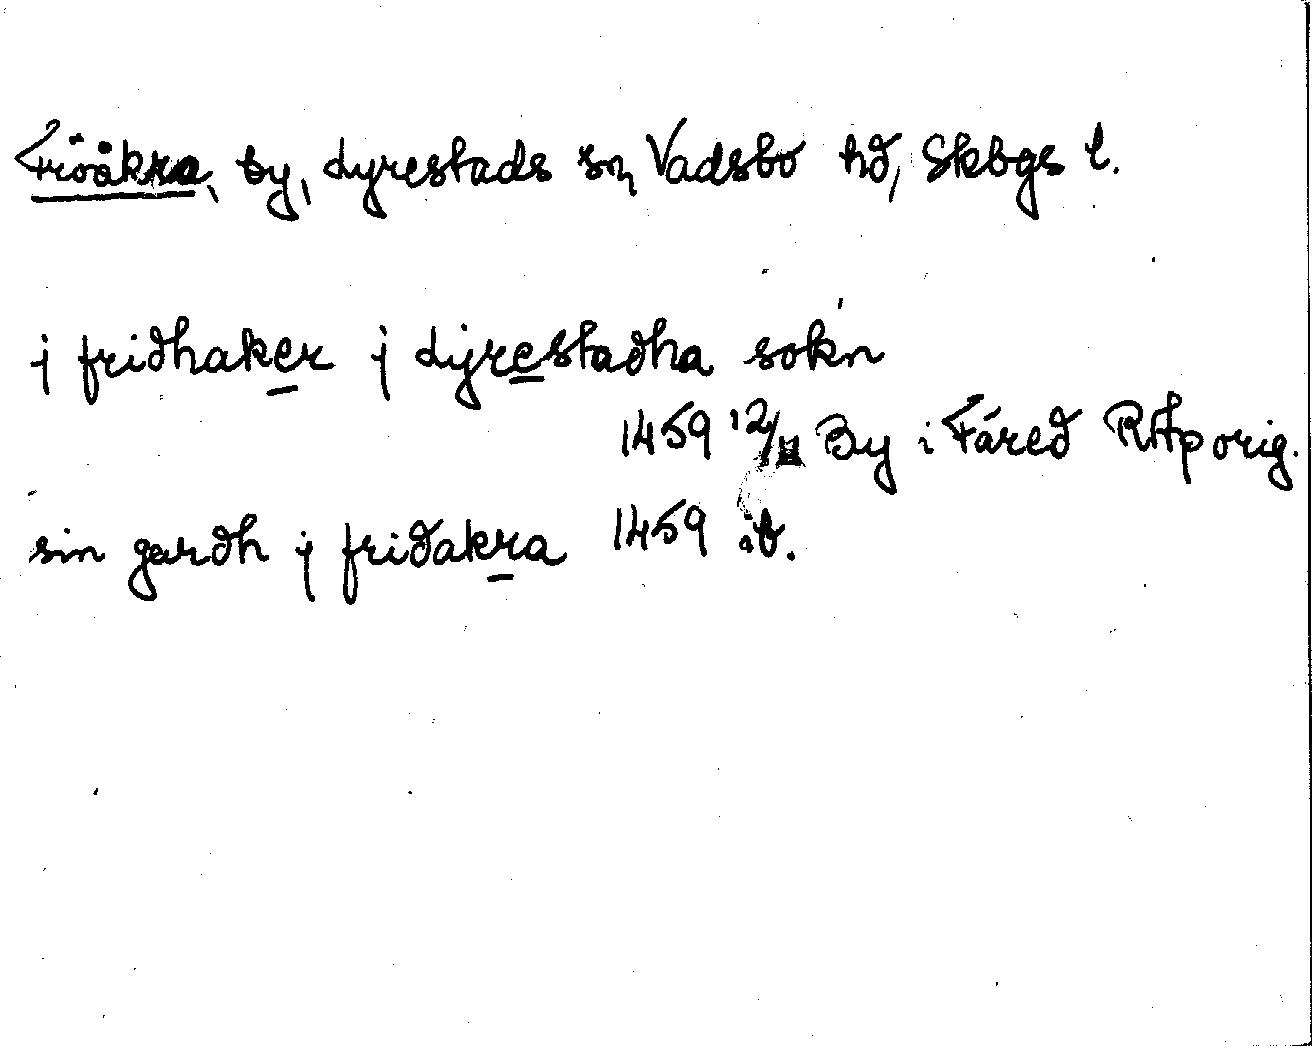 Fröåkra, by, Lyrestads sn, Vadsbo hd, Skbgs l.
j fridhaker j Lÿrestadha sokn
1459 12/11 By i Fåred RAp orig.
sin gardh j fridakra 1459 ib.